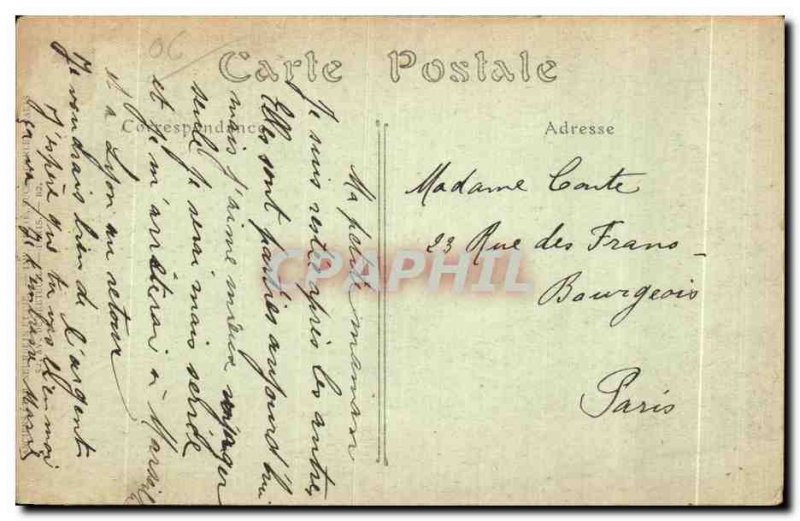 Carte Postale
Correspondance
Adresse
Ma petite maman
Je suis restée après les autres,
Elles sont parties aujourd'hui
mais j'aime mieux voyager
seule je serai mais seule
et je m'arrêterai à Marseille
et à Lyon au retour
Je voudrais bien de l'argent
J'espère que tu vas bien moi
ça va. Je t'embrasse
Madame Conte
23 Rue des Francs-
Bourgeois
Paris
CPAPHIL